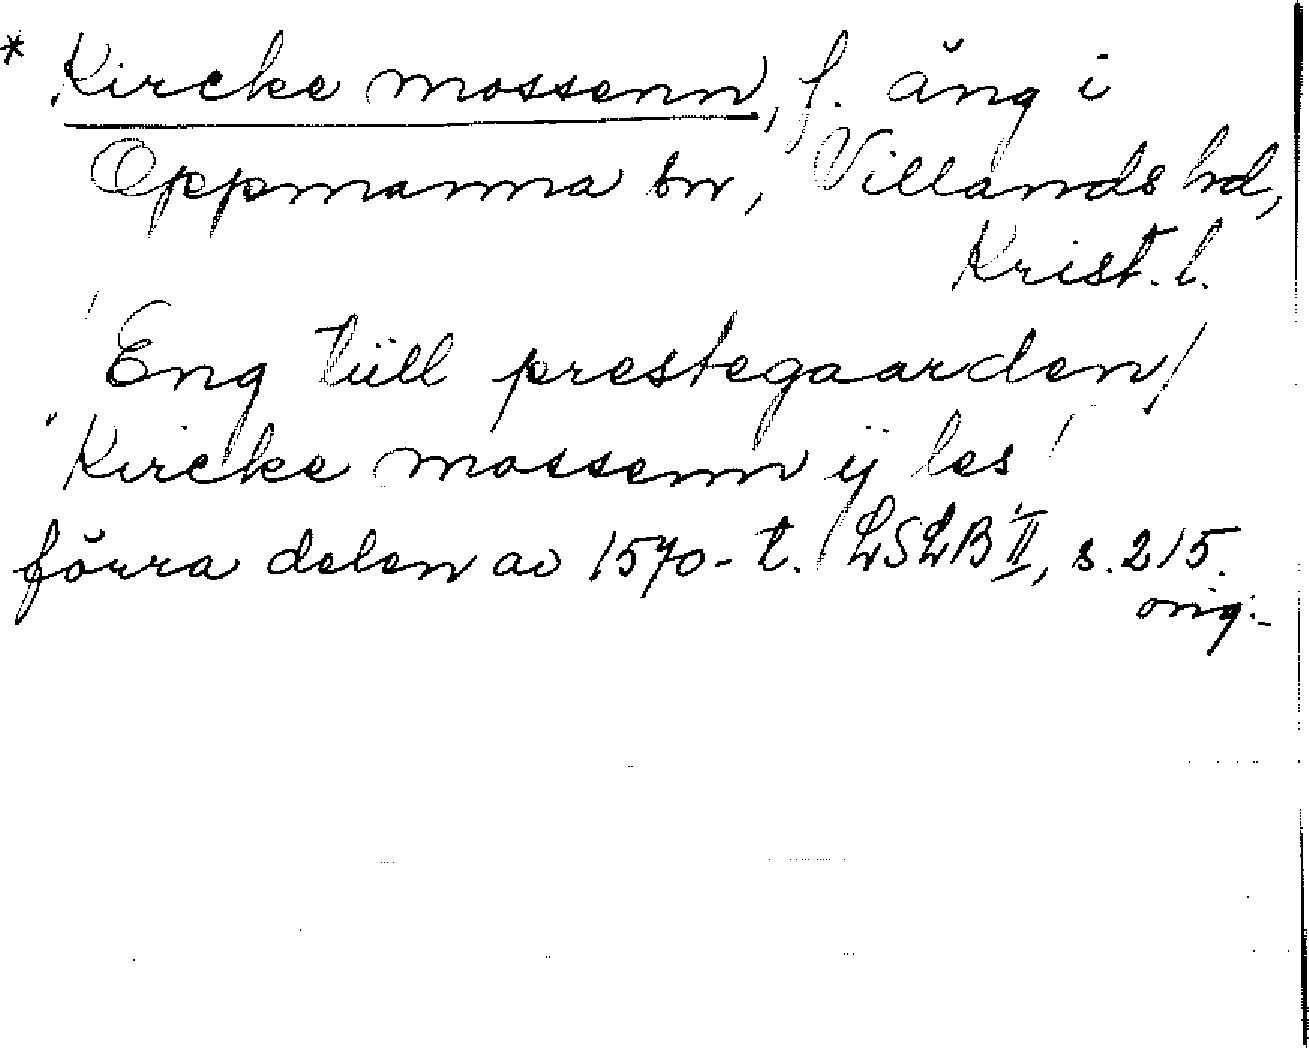 * Kircke mossenn, f. äng i
Oppmanna sn, Villands hd,
Krist. l.
'Eng tüll prestegaarden/
Kircke mossenn ÿ les'
förra delen av 1570-t. LSLB II, s. 215.
orig:-